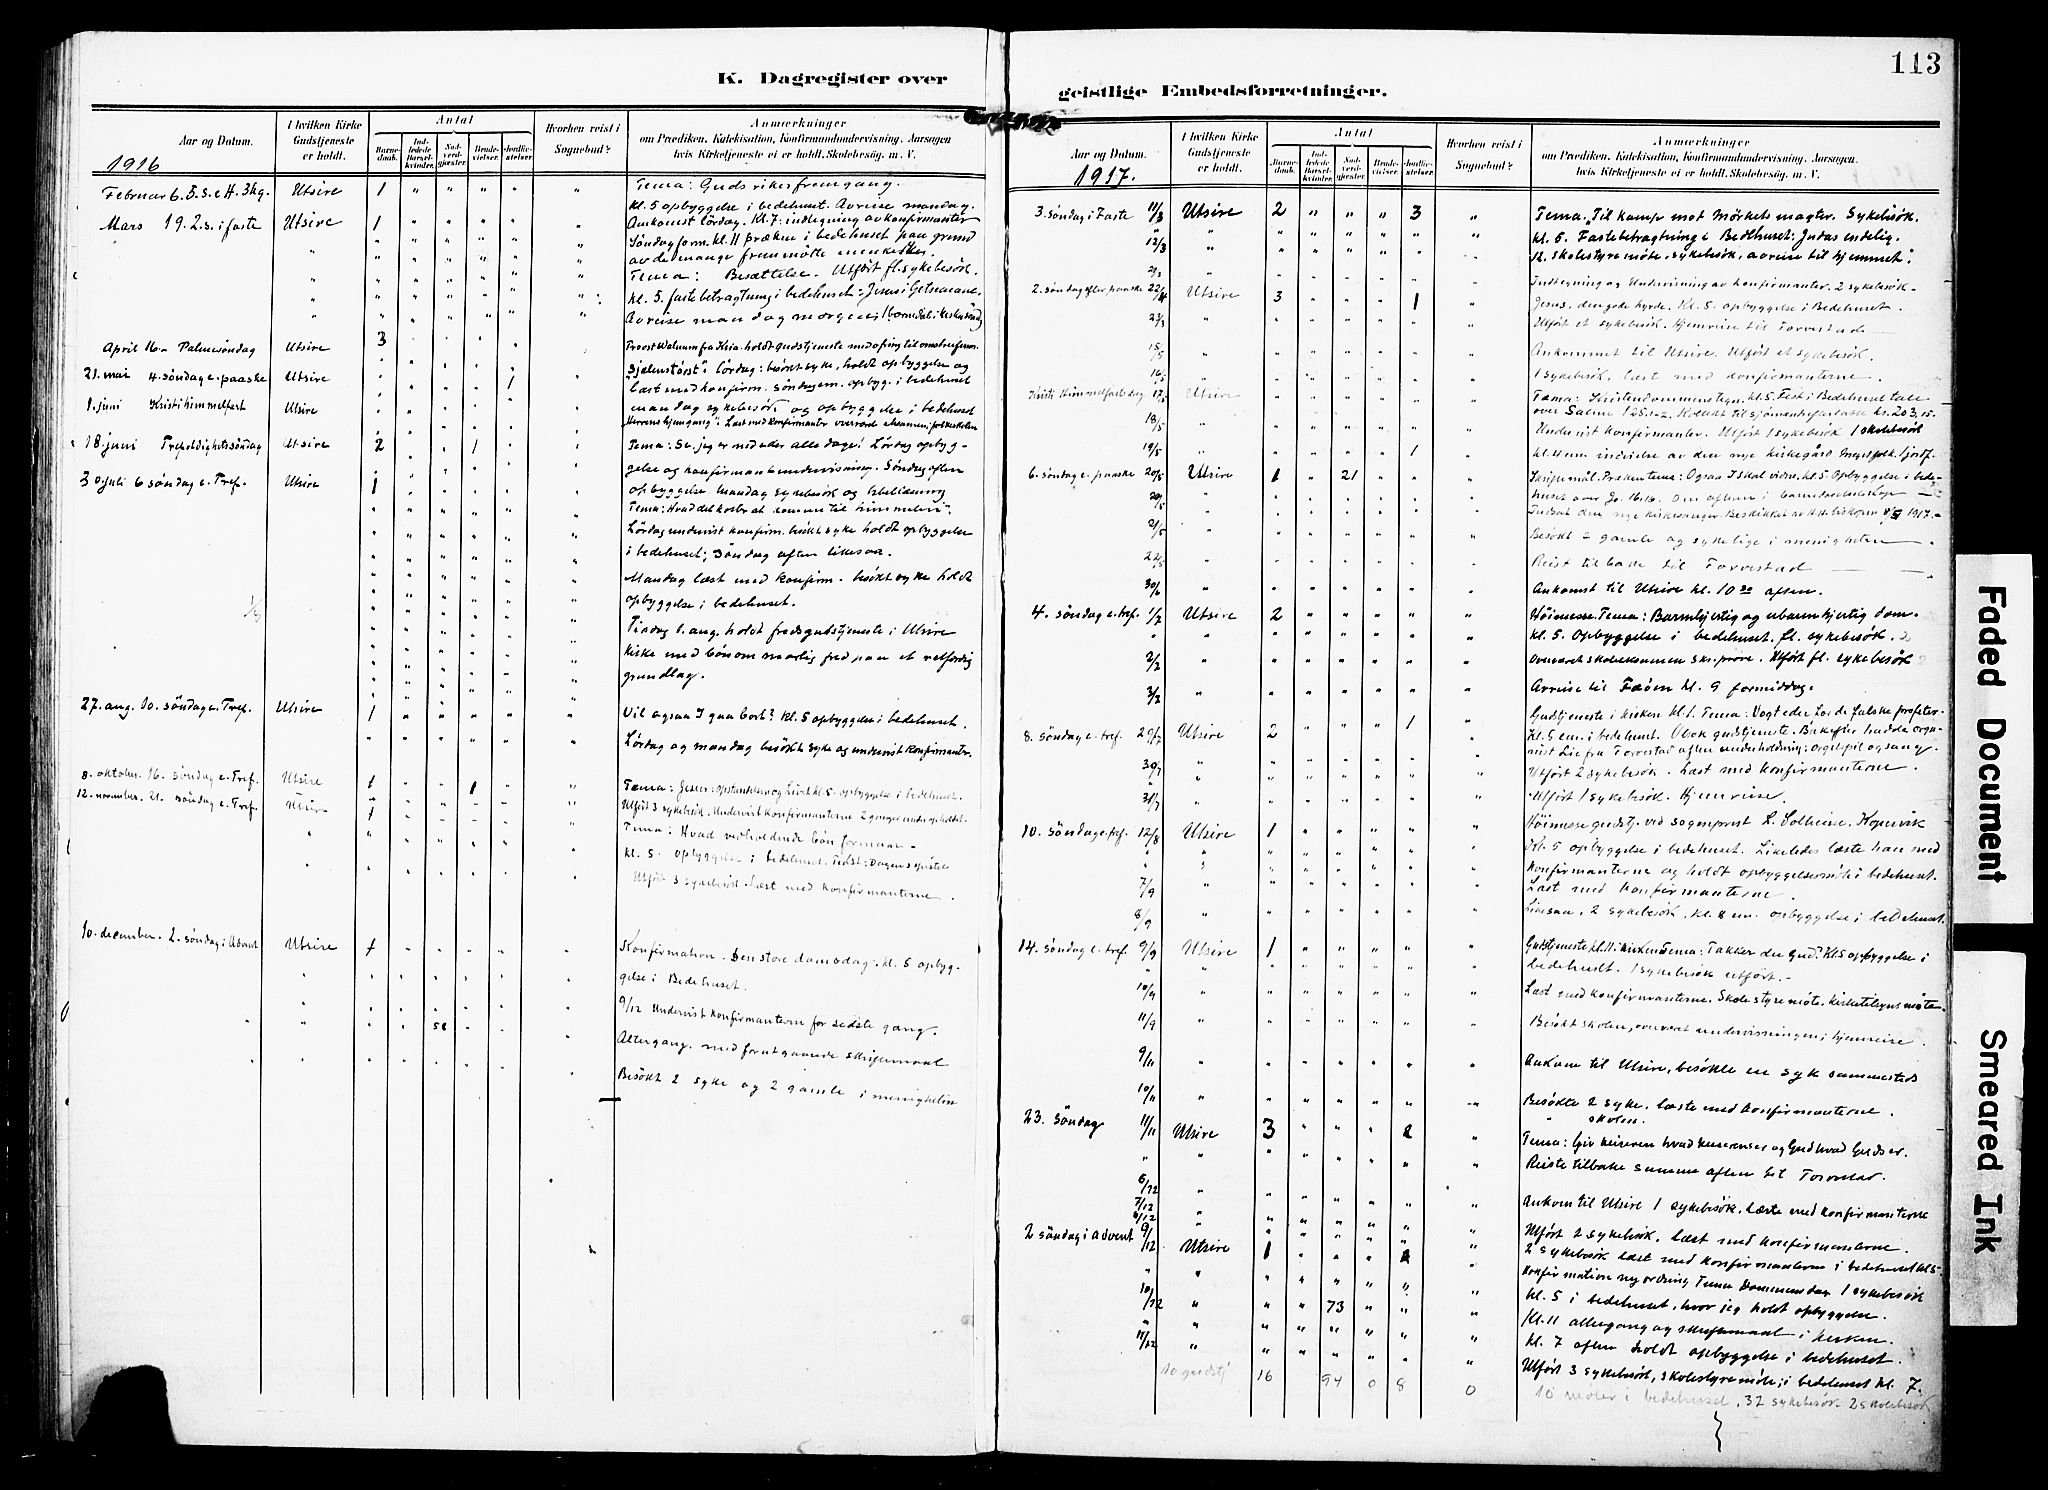 K. Dagregister over
Aar og Datum.
1916
I hvilken Kirke Gudstjeneste er holdt.
Antal
Barnedaab.
Indledede Barselkvinder.
Nadverdgjester.
Brudevielser.
Jordfæstelser.
Hvorhen reist i Sognebud?
Anmerkninger
om Prædiken, Katekisation, Konfirmandundervisning, Aarsagen
hvis Kirketjeneste ei er holdt, Skolebesøg, m. V.
Februar 6. 5. s. e H. 3kg. Utsire 1 Tema: Guds rikes fremgang.
kl. 5 opbyggelse i bedehuset. Avreise mandag.
Mars 19. 2. s. i faste Utsire 1 Ankomst lördag. Kl. 7: indtegning av konfirmanter
Söndag form. kl. 11 præken i bedehuset paa grund
av de mange fremmötte mennesker.
Tema: Besættelse. Utfört fl. sykebesök.
kl. 5. fastebetragtning i bedehuset: Jesus i Getsemane.
Avreise mandag morgen
April 16 - Palmesöndag Utsire 3 Provst Walnum fra holdt gudstjeneste
21. mai 4. söndag e. paaske Utsire 1 "Sjelens törst". Lördag: besökt syke, holdt opbyggelse og
læst med konfirm. söndag em. opbyg. i bedehuset
1. juni Kristi himmelfart Utsire mandag sykebesök og opbyggelse i bedehuset
Herrens hjemgang". Læst med konfirmanter overvært eksamen i folkeskolen
18. juni Trefoldighetssöndag Utsire 2 1 Tema: Se, jeg er med eder alle dage! Lördag opbyg-
gelse og konfirmantundervisning. Söndag aften
30. juli 6 söndag e. Tref. Utsire 1 opbyggelse mandag sykebesök og
Tema: Hvad det koster at komme til himmelen".
Lördag undervist konfirm. besökt syke holdt opbyggelse
i bedehuset; Söndag aften likesaa.
Mandag læst med konfirm. besökt syke holdt
opbyggelse i bedehuset.
1/8 Tirsdag 1. aug. holdt fredsgudstjeneste i Utsire
kirke med bön om snarlig fred paa et retfærdig
grundlag.
27. aug. 10. söndag e. Tref. Utsire 1 Vil ogsaa I gaa bort? Kl. 5 opbyggelse i bedehuset.
Lördag og mandag besökt syke og undervist konfirmanter.
8. oktober. 16. söndag e. Tref. Utsire 1 1 Tema: Jesus: opstandelsen og Livet kl. 5 opbyggelse i bedehuset.
12. november. 21. söndag e. Tref. Utsire 1 Utfört 3 sykebesök. Undervist konfirmanterne 2 ganger under opholdet.
Tema: Hvad vedholdende bön formaar -
kl. 5 opbyggelse i bedehuset. Tekst: Dagens epistel
Utfört 3 sykebesök. Læst med konfirmanterne.
10. december. 2. söndag i Advent Utsire 1 Konfirmation. Den store domsdag: kl. 5 opbyg-
gelse i Bedehuset.
9/12 Undervist konfirmantern for sidste gang.
58 Altergang, med forutgaaende skriftemaal
Besökt 2 syke og 2 gamle i menigheten
113
geistlige Embedsforretninger.
Aar og Datum.
1917.
I hvilken Kirke Gudstjeneste er holdt.
Antal
Barnedaab.
Indledede Barselkvinder.
Nadverdgjester.
Brudevielser.
Jordfæstelser.
Hvorhen reist i Sognebud?
Anmerkninger
om Prædiken, Katekisation, Konfirmandundervisning, Aarsagen
hvis Kirketjeneste ei er holdt, Skolebesøg, m. V.
3. söndag i Faste 11/3 Utsire 2 3 Tema: "Til kamp mot mörkets magter. Sykebesök.
kl. 5. Fastebetragtning i Bedehuset: Judas endelig.
12/3 skolestyremöte, sykebesök, avreise til hjemmet.
21/3 Indtegning og Undervisning av konfirmanter. 2 sykebesök -
2. söndag efter paaske 22/4 Utsire 3 1 Jesus, den gode hyrde. Kl. 5. opbyggelse i Bedehuset.
23/3 Utfört et sykebesök. Hjemreise til Torvestad
15/5 Ankommet til Utsire. Utfört et sykebesök.
16/5 1 sykebesök, læst med konfirmanterne.
Kristi Himmelfartsdag 17/5 Utsire Tema: Kristendommens tegn. kl. 5. Fest i Bedehuset tale
over Salme 125. 1-2. Kollekt til sjömandsfarlatte kr. 203,15.
18/5 Undervist konfirmanter. Utfört 1 sykebesök 1 skolebesök
19/5 1 kl. 4 em. indvielse av den nye kirkegård
6. söndag e. paaske 20/5 Utsire 1 21 Skriftemål. Prækentema: Ogsaa I skal vidne, kl. 5 opbyggelse i bede-
20/5 huset over Jo. 16.16. om aften i barnedaabselskap -
Indsat den nye kirkesanger. Beskikket av H.H. biskopen 1917.
21/5 Besökt 2 gamle og sykelige i menigheten
22/5 Reist tilbake til Torvestad
30/6 Ankomst til Utsire kl. 10 30 aften.
4. söndag e. tref. 1/7 Utsire 2 Höimesse. Tema: Barmhjertig og ubarmhjertig dom.
kl. 5. Opbyggelse i bedehuset. fl. sykebesök. 2
2/7 Overværet skoleeksamen skr. pröve. Utfört fl. sykebesök 2
3/7 Avreise til Feöen kl. 9 formiddag.
8. söndag e. tref. 29/7 Utsire 2 1 Gudstjeneste i kirken kl. 1. Tema: Vogt eder for de falske profeter.
Kl. 5 em. i bedehuset. Ubok gudstjeneste. Bakefter hadde orga-
nist Lie fra Torvestad aften underholdning: orgelspil og sang.
30/7 Utfört 2 sykebesök. Læst med konfirmanterne.
31/7 Utfört 1 sykebesök. Hjemreise.
10. söndag e. tref. 12/8 Utsire 1 Höimesse gudstj. ved sogneprest L. Solheim, Kopervik
kl. 5 opbyggelse i bedehuset. Likeledes læste han med
konfirmanterne og holdt opbyggelsesmöte i bedehuset.
7/9 Læst med konfirmanterne.
8/9 Likesaa, 2 sykebesök, kl. 8 em. opbyggelse i bedehuset.
14. söndag e. tref. 9/9 Utsire 1 Gudstjeneste kl. 11 i kirken Tema: Takker du Gud? Kl. 5 opbyggelse i
bedehuset. 1 sykebesök utfört.
10/9 Læst med konfirmanterne. Skolestyremöte, kirketilsynsmöte
11/9 Besökt skolen, overvært undervisningen, hjemreise.
9/11 Ankom til Utsire, besökte en syk sammesteds
10/11 Besökte 2 syke. læste med konfirmanterne.
" skolen.
23. Söndag 11/11 Utsire 3 2 Tema: Giv keiseren hvad keiserens er og Gud hvad Guds er.
Reiste tilbake samme aften til Torvestad.
6/12 Ankom til Utsire 1 sykebesök, læste med konfirmanterne
7/12 Utfört 2 sykebesök. læst med konfirmanterne.
8/12 2 sykebesök læst med konfirmanterne i bedehuset kl. 5.
2 söndag i Advent 9/12 Utsire 1 2 Konfirmation ny ordning Tema Dommens dag 1 sykebesök
kl. 5 i bedehuset, hvor jeg holdt opbyggelse.
10/12 73 Kl. 11 altergang og skriftemaal i kirken.
kl. 7 aften holdt opbyggelse i bedehuset.
11/12 Utfört 3 sykebesök, skolestyremöte, i bedehuset kl. 7.
10 gudstj 16 94 0 8 0 10 möter i bedehuset, 32 sykebesök 2 skolebesök
Faded Document
Smeared Ink